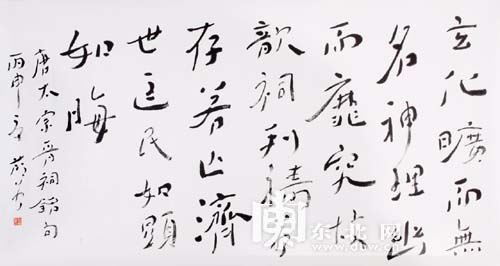 玄化曠而無
名神理幽
而靡究故
歆祠利禱若
存若亡濟
世匡民如顯
如晦
唐太宗晉祠銘句
丙申
东北网
www.dbw.cn